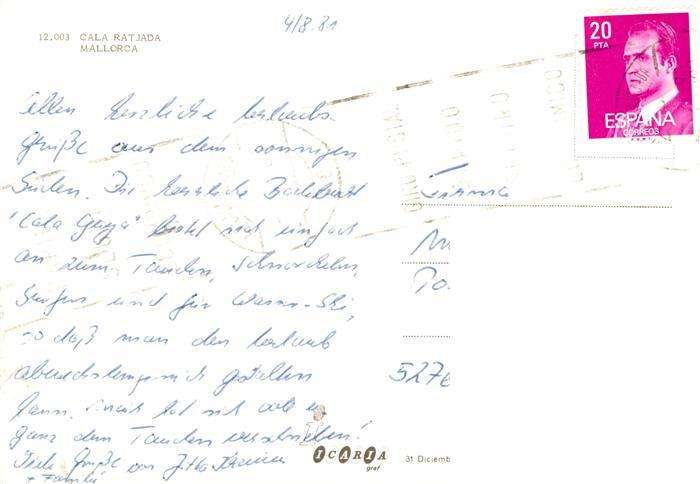 4/8.81
12.003 CALA RATJADA
MALLORCA
20
PTA
ESPAÑA
CORREOS
allen herzliche Urlaubs-
grüße aus dem sonnigen
Süden. Die herrliche Badebucht
"Cala Guya" bietet sich einfach
an zum Tauchen, Schnorcheln,
Surfen und für Wasser-Ski,
so daß man den Urlaub
abwechslungsreich gestalten
kann. hat sich
ganz dem Tauchen verschrieben!
Viele Grüße von Jutta
+ Familie
Firma
527
ICARIA
graf
31 Diciemb